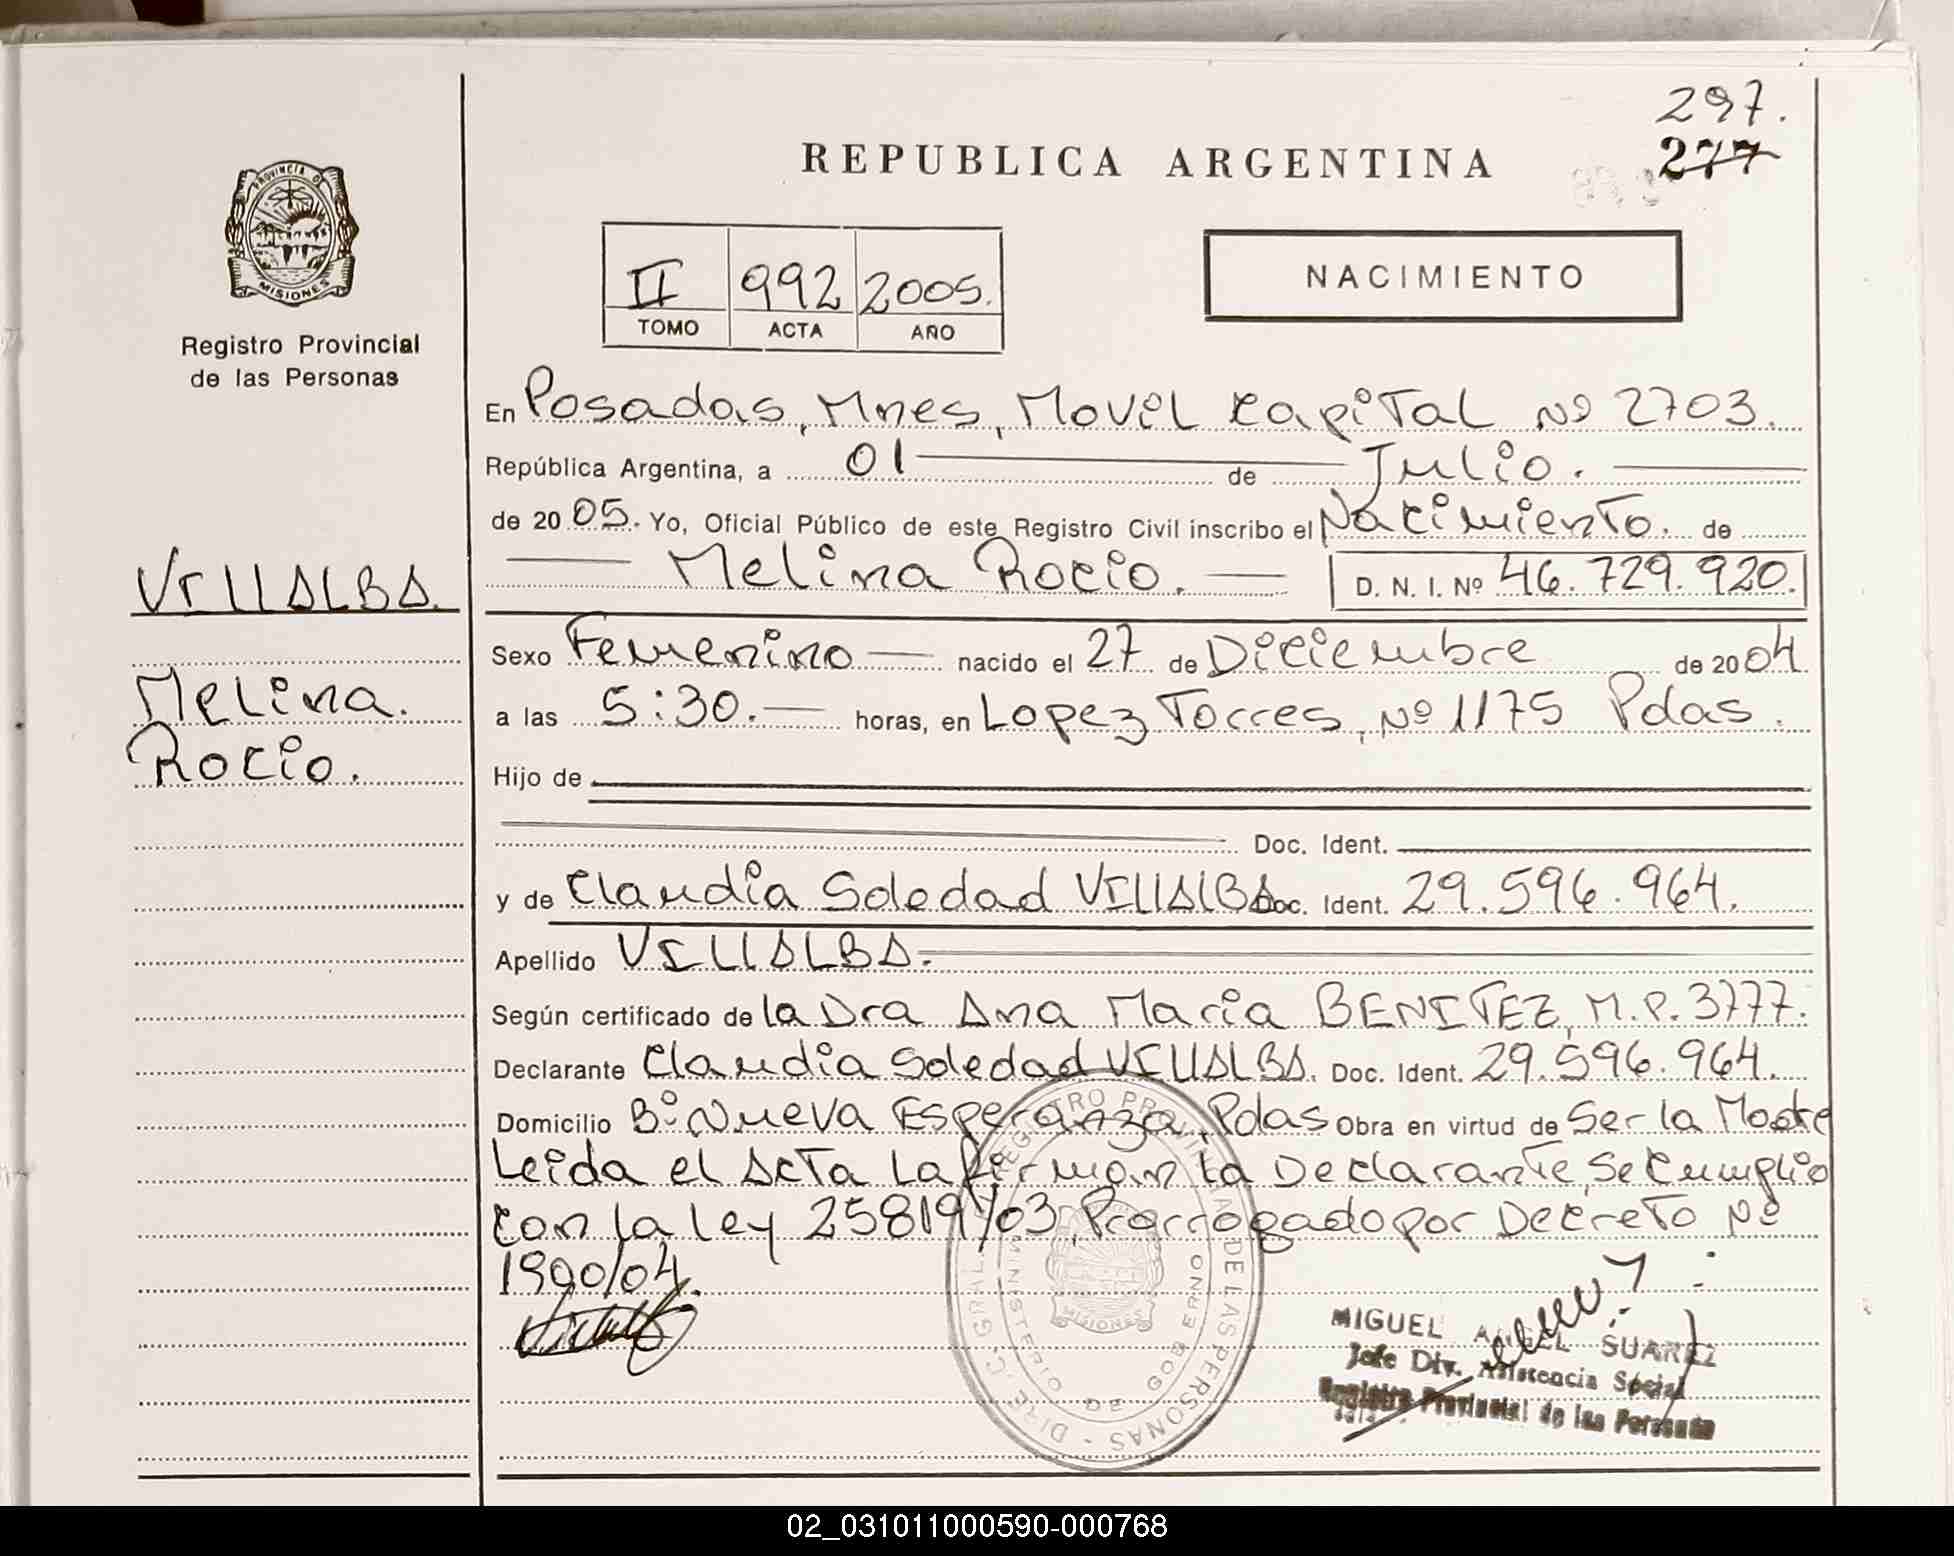 297.
277
REPUBLICA ARGENTINA
PROVINCIA DE
MISIONES
Registro Provincial
de las Personas
II 992 2005.
TOMO ACTA AÑO
NACIMIENTO
En Posadas, Mnes, Movil Capital Nº 2703.
República Argentina, a 01 de Julio.
de 20 05. Yo, Oficial Público de este Registro Civil inscribo el Nacimiento. de
Melina Rocio. D. N. I. Nº 46.729.920.
VILLALBA.
Melina.
Rocio.
Sexo Femenino nacido el 27 de Diciembre de 20 04
a las 5:30. horas, en Lopez Torres, Nº 1175 Pdas.
Hijo de
Doc. Ident.
y de Claudia Soledad VILLALBA Doc. Ident. 29.596.964.
Apellido VILLALBA.
Según certificado de la Dra Ana Maria BENITEZ, M.P. 3777.
Declarante Claudia Soledad VILLALBA. Doc. Ident. 29.596.964.
Domicilio Bº Nueva Esperanza, Pdas Obra en virtud de Ser la Madre
Leida el Acta La firman la Declarante, Se Cumplio
con la ley 25819/03, Prorrogado por Decreto Nº
1990/04.
DIRE. C. GRAL. REGISTRO PROVINCIAL DE LAS PERSONAS
MINISTERIO DE GOBIERNO
MISIONES
MIGUEL ANGEL SUAREZ
Jefe Div. Asistencia Social
Registro Provincial de las Personas
02_031011000590-000768